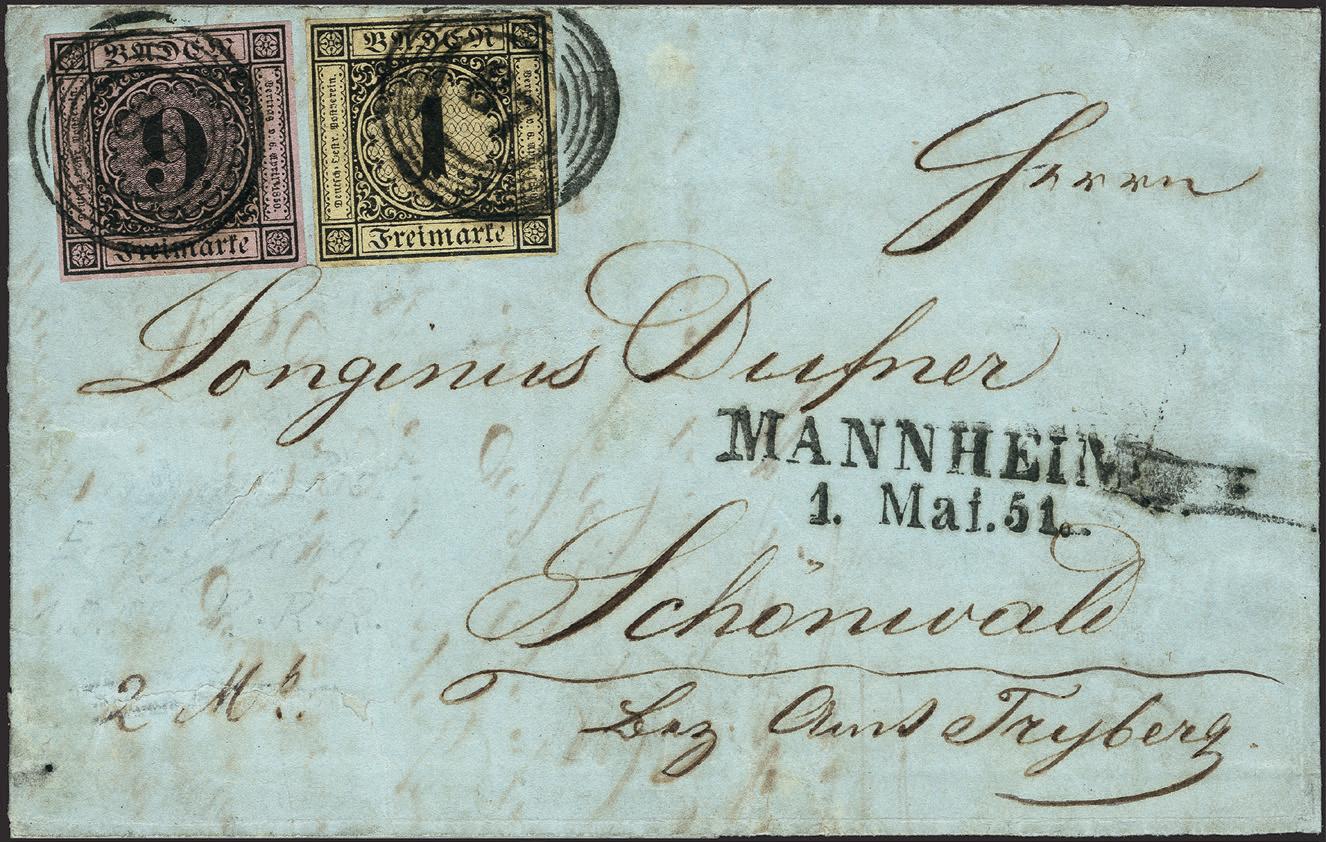 BADEN
9
Freimarke
BADEN
Deutsch-Oestr. Postverein.
1
Freimarke
Herrn
Longinus Dufner
MANNHEIM
1. Mai. 51.
Schönwald
2 Mb.
Bez. Amts Tryberg.